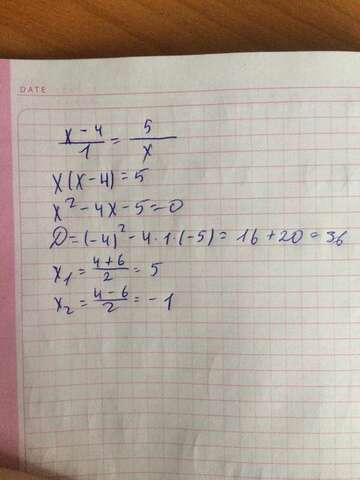 DATE
x - 4 / 1 = 5 / x
x(x-4) = 5
x² - 4x - 5 = 0
D = (-4)² - 4 · 1 · (-5) = 16 + 20 = 36
x₁ = 4+6 / 2 = 5
x₂ = 4-6 / 2 = -1